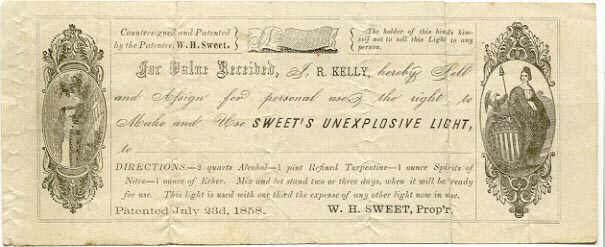 Countersigned and Patented
by the Patentee, W. H. Sweet.
The holder of this binds him-
self not to sell this Light to any
person.
For Value Received, I, R. KELLY, hereby Sell
and Assign for personal use, the right to
Make and Use SWEET'S UNEXPLOSIVE LIGHT,
to
DIRECTIONS.—2 quarts Alcohol—1 pint Refined Turpentine—1 ounce Spirits of
Nitre—1 ounce of Ether. Mix and let stand two or three days, when it will be ready
for use. This light is used with one third the expense of any other light now in use.
Patented July 23d, 1858.
W. H. SWEET, Prop'r.